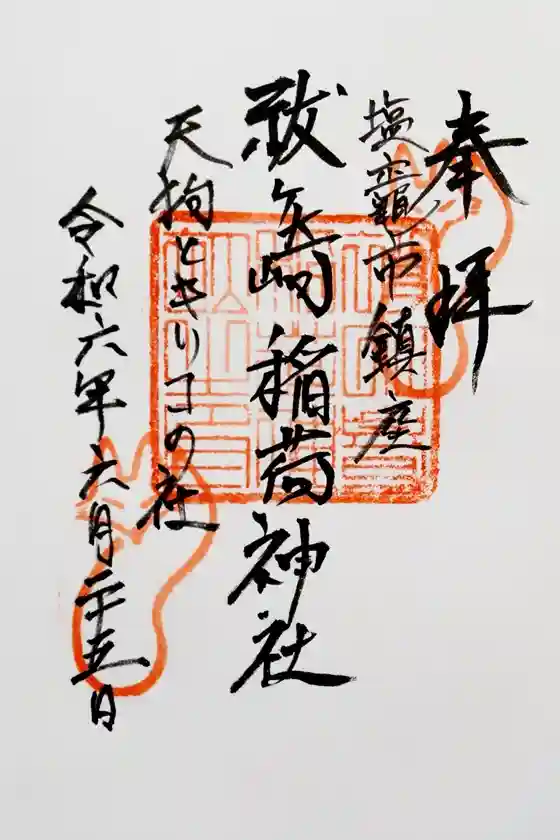 奉拝
塩竈市鎮座
祓ヶ崎稲荷神社
天狗ときりコの社
令和六年六月二十五日